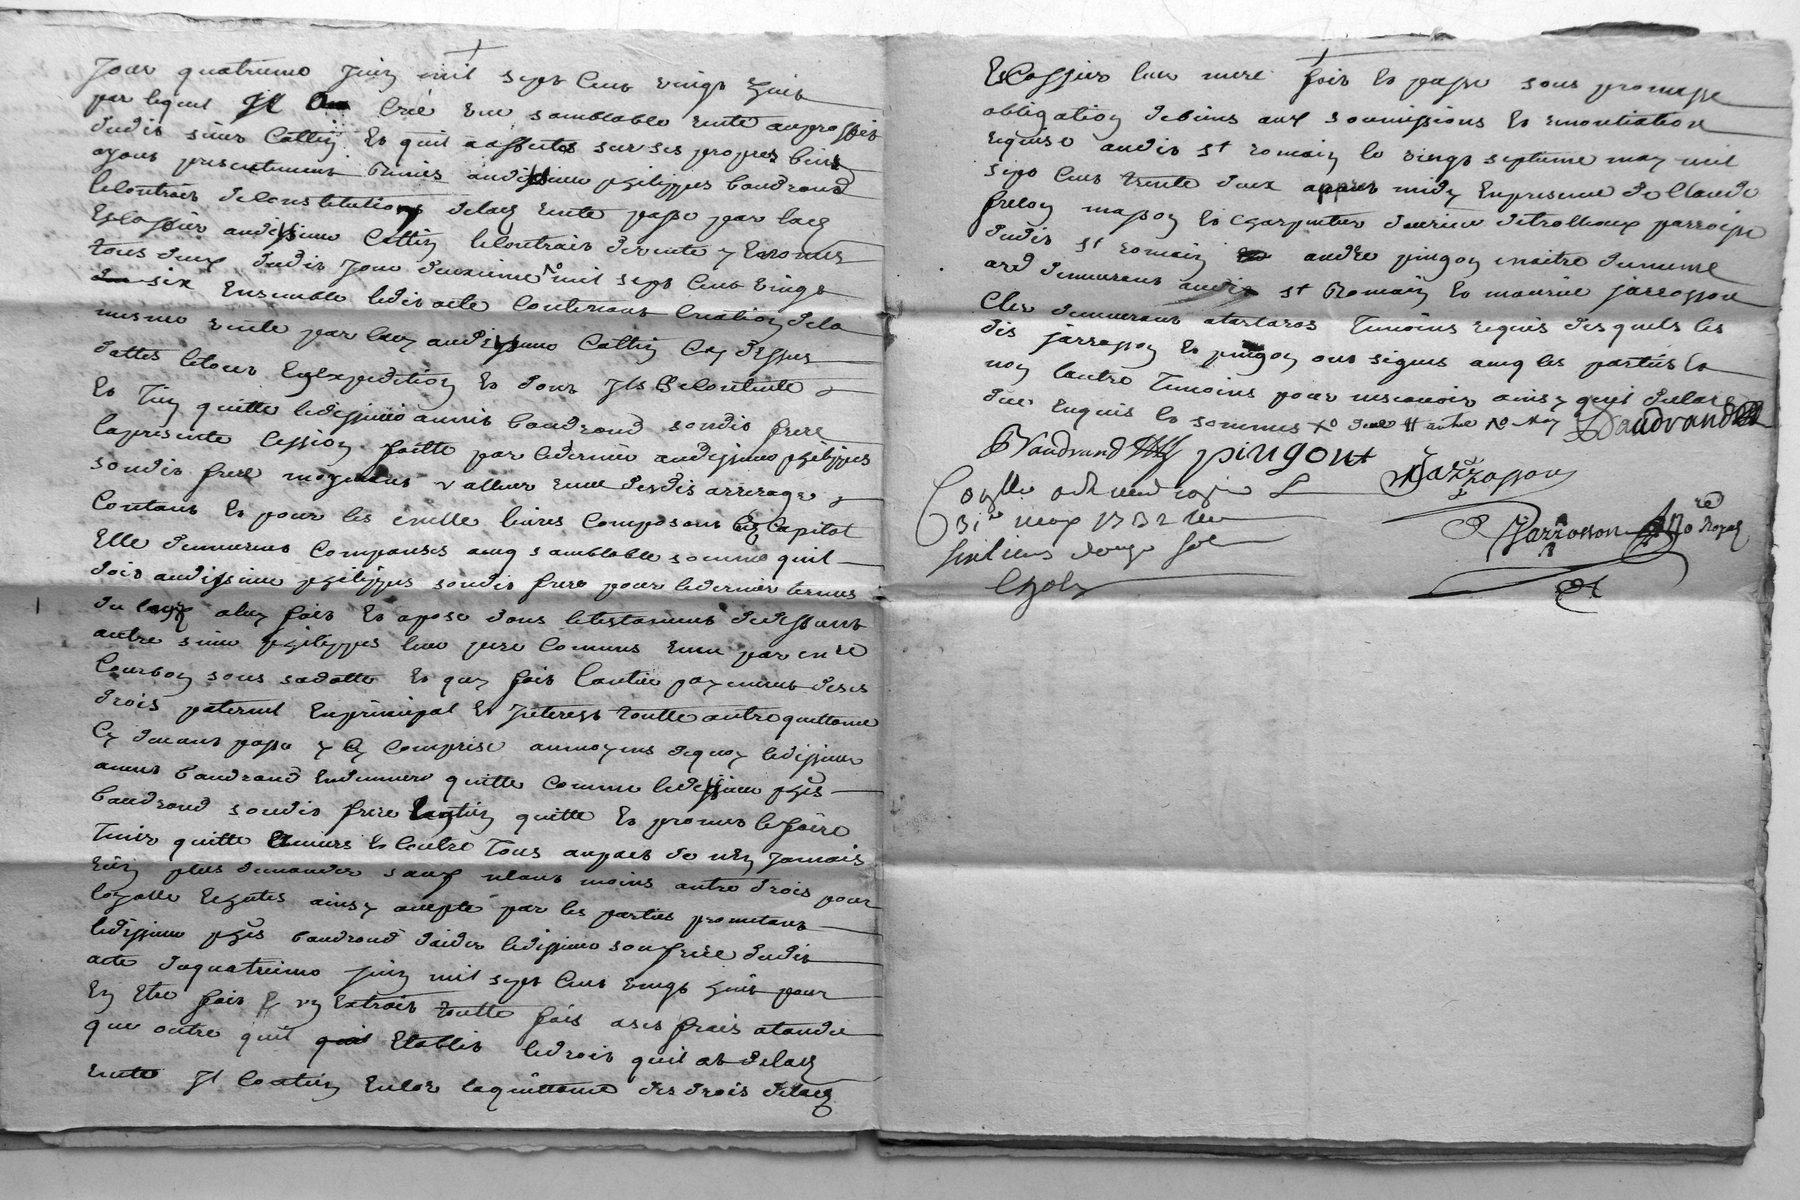 Jour quatrieme juin mil sept cens vingt huit
par lequel Il crée une semblable rente au proffit
dudit sieur Cattin et quil a affectés sur ses propres biens
ayant presentement Remis audit sieur philippes baudrand
le contrait de constitution de rente passé par
audit sieur Cattin le contrait de rente y Enoncer
tous deux dudit jour deuxieme mil sept cens vingt
six Ensemble ledit acte contenant Creation de la
mesme rente par audit sieur Cattin Cy dessus
dattes le tout En expedition et dont Ils se contente
Et Tien quitte ledit sieur annet baudrand sondit frere
la presente Cession faitte par le dernier audit sieur philippes
sondit frere moyenant valleur Reue desdis arrerages
Contans et pour les mille livres Composans Capital
Elle demeurent Compansés avec semblable somme quil
doit audit sieur philippes sondit frere pour le dernier termes
du legs a luy fait et aposé dans le testament de deffunt
autre sieur philippes leur pere Comme
Courbon sous sa datte et qui fait l'antier payement de ses
droit paternel En principal et interest toutte autre quittance
Cy devant passé y Comprise au moyens de quoy ledit sieur
annet baudrand En demeure quitte Comme ledit sieur phés
baudrand sondit frere tien quitte et promet le faire
Tenir quitte Envers et Contre Tous aupaid de nen Jamais
Rien plus demander sauf neant moins autre droit pour
loyalle ainsy accepté par les parties promettant
ledit sieur phés baudrand d'aider ledit sieur son frere dudit
acte du quatrieme juin mil sept cens vingt huit pour
En Etre fait un Extrait toutte fois a ses frais atandu
que outre quil Etablit le droit quil at de
rente Il Contien Encor la quittance des droit de
Escoffier leur mere fait et passé sous promesse
obligation de biens aux soumissions et renontiation
requise audit St romain le vingt septieme may mil
sept cens trente deux apres midy En presence de Claude
freson masson et charpentier parroisse
dudit St romain andré pingon maitre du mesme
art demeurant audit St Romain et maurice jarrosson
Clerc demeurant a tartaras Temoins requis desquels les
dis jarrosson et pingon ont signés avec les parties Et
non l'autre Temoins pour ne scavoir ainsy quil declare
de ce Enquis et sommés
Baudrand
Baudrand pingont
Jarrosson
31e may 1732
Jarrosson No Royal